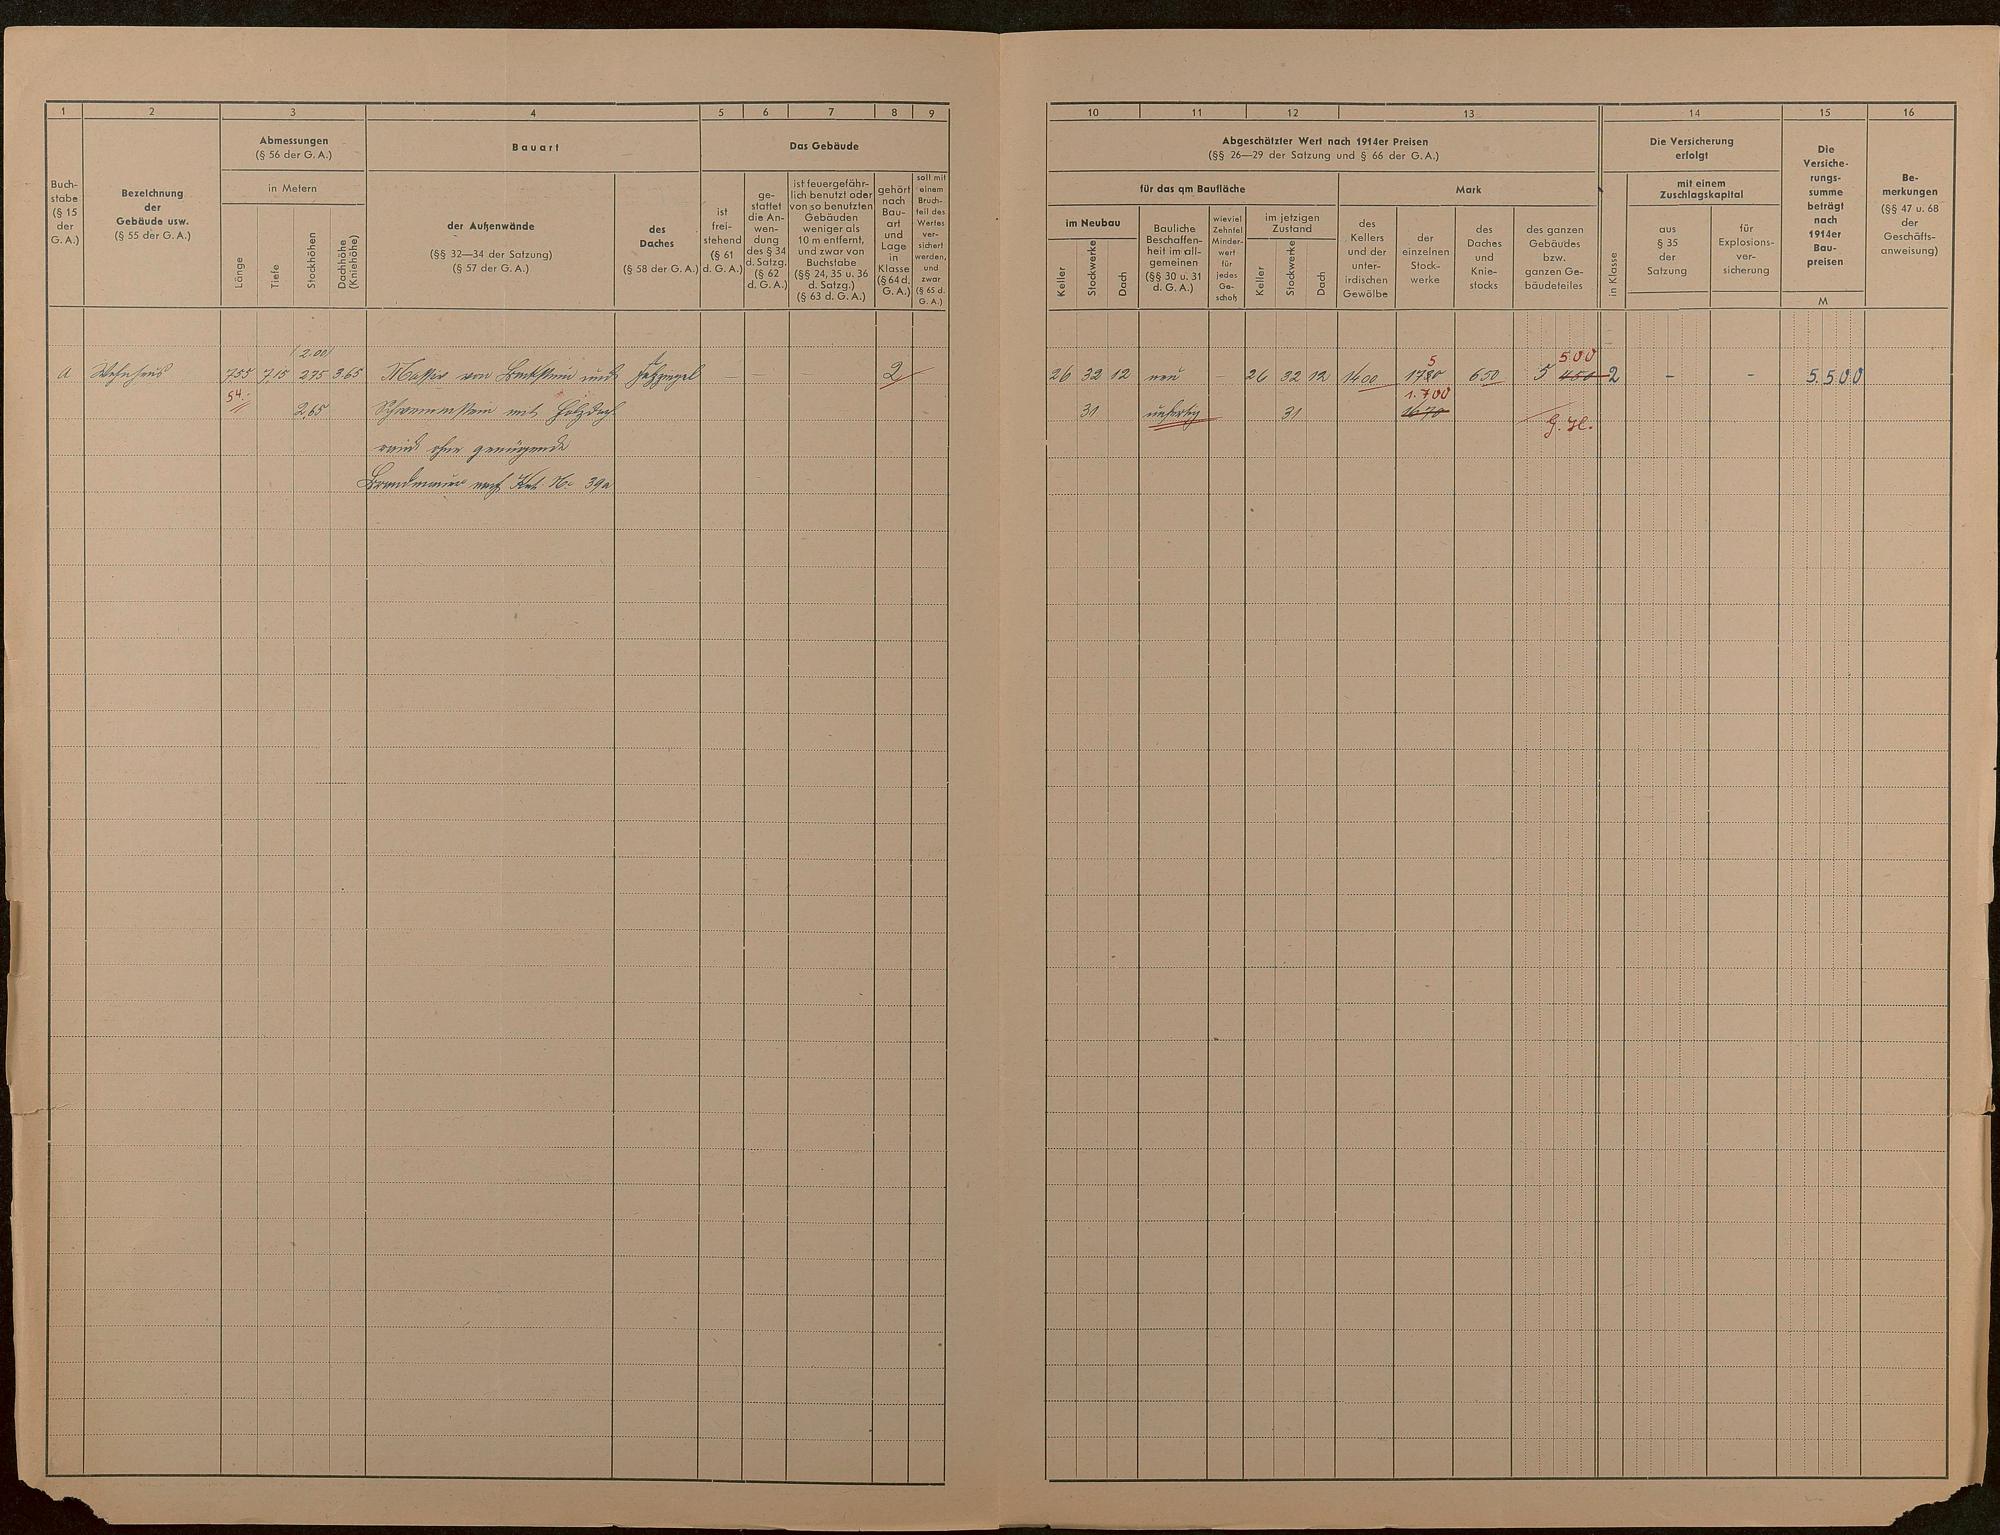 1 2 3 4 5 6 7 8 9
Abmessungen
(§ 56 der G. A.)
Bauart
Das Gebäude
Buch-
stabe
(§ 15
der
G. A.)
Bezeichnung
der
Gebäude usw.
(§ 55 der G. A.)
in Metern
Länge
Tiefe
Stockhöhen
Dachhöhe
(Kniehöhe)
der Außenwände
(§§ 32—34 der Satzung)
(§ 57 der G. A.)
des
Daches
(§ 58 der G. A.)
ist
frei-
stehend
(§ 61
d. G. A.)
ge-
stattet
die An-
wen-
dung
des § 34
d. Satzg.
(§ 62
d. G. A.)
ist feuergefähr-
lich benutzt oder
von so benutzten
Gebäuden
weniger als
10 m entfernt,
und zwar von
Buchstabe
(§§ 24, 35 u. 36
d. Satzg.)
(§ 63 d. G. A.)
gehört
nach
Bau-
art
und
Lage
in
Klasse
(§ 64 d.
G. A.)
soll mit
einem
Bruch-
teil des
Wertes
ver-
sichert
werden,
und
zwar
(§ 65 d.
G. A.)
(2.00)
A Wohnhaus 7.55 7.15 2.75 3.65 Massiv von Backstein und Falzziegel 2
54.- 2.65 Schwemmstein mit Holzdach
wird ohne genügende
Brandmauer nach Kat. No 39a
10 11 12 13 14 15 16
Abgeschätzter Wert nach 1914er Preisen
(§§ 26—29 der Satzung und § 66 der G. A.)
für das qm Baufläche
Mark
im Neubau
Keller
Stockwerke
Dach
Bauliche
Beschaffen-
heit im all-
gemeinen
(§§ 30 u. 31
d. G. A.)
wieviel
Zehntel
Minder-
wert
für
jedes
Ge-
schoß
im jetzigen
Zustand
Keller
Stockwerke
Dach
des
Kellers
und der
unter-
irdischen
Gewölbe
der
einzelnen
Stock-
werke
des
Daches
und
Knie-
stocks
des ganzen
Gebäudes
bzw.
ganzen Ge-
bäudeteiles
Die Versicherung
erfolgt
in Klasse
mit einem
Zuschlagskapital
aus
§ 35
der
Satzung
für
Explosions-
ver-
sicherung
Die
Versiche-
rungs-
summe
beträgt
nach
1914er
Bau-
preisen
M
Be-
merkungen
(§§ 47 u. 68
der
Geschäfts-
anweisung)
5 500
26 32 12 neu 26 32 12 1400 1720 650 5 450 2 – – 5.500
1.700
31 unfertig 31 1670
G. H.